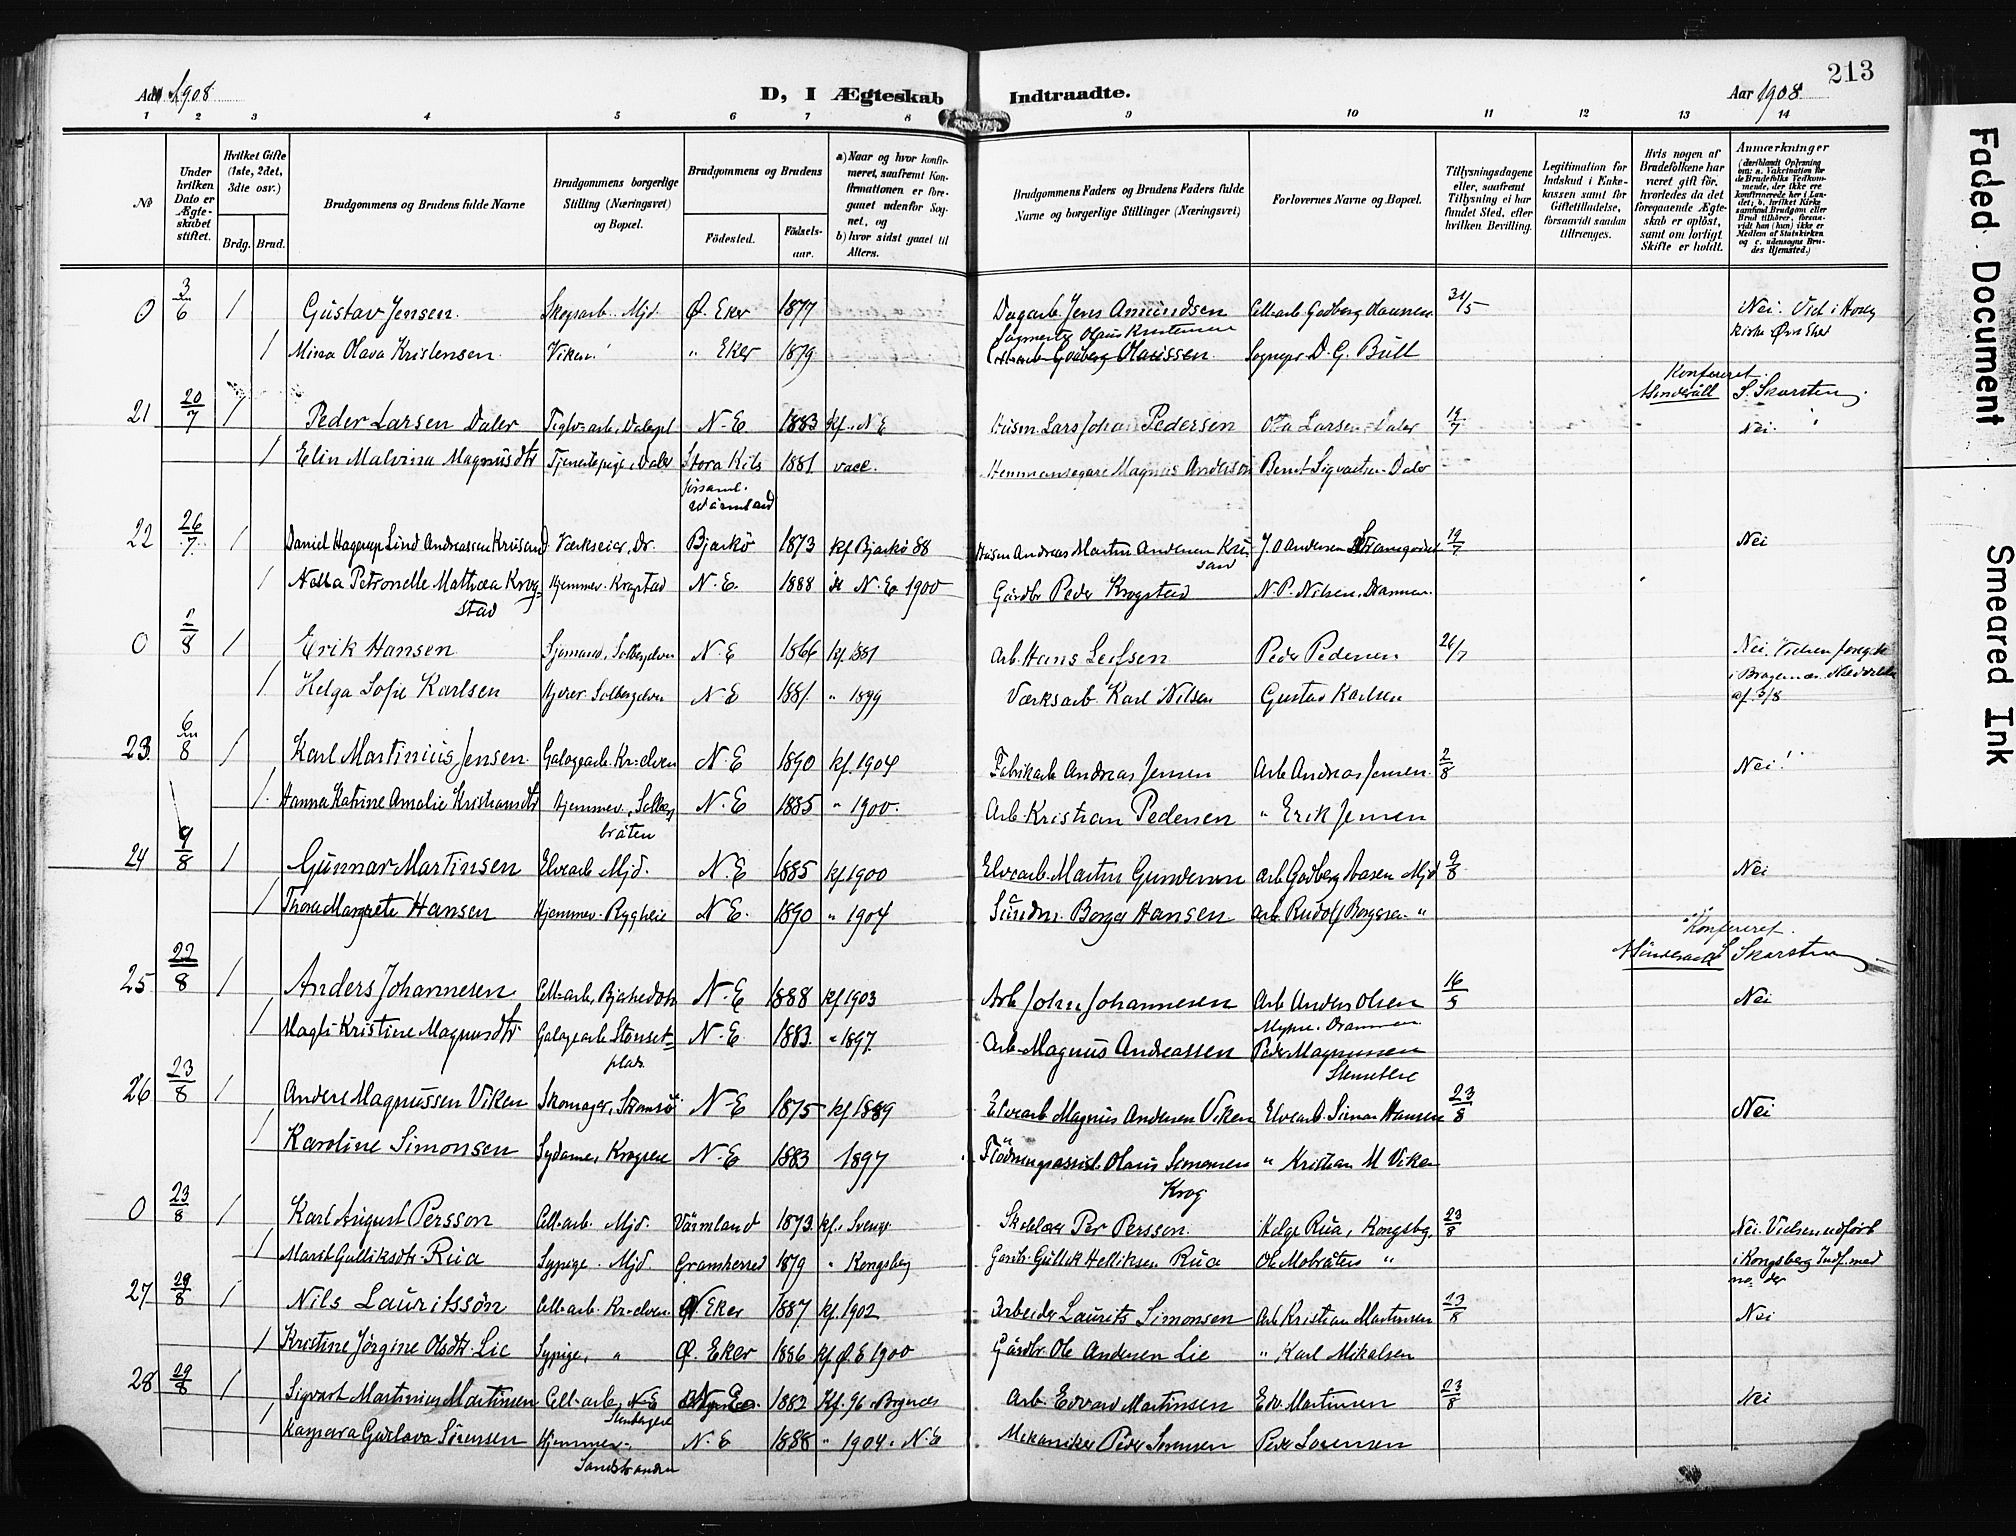 Aar 1908
D, I Ægteskab Indtraadte.
Aar 1908.
213
1 2 3 4 5 6 7 8 9 10 11 12 13 14
No
Under hvilken Dato er Ægteskabet stiftet.
Hvilket Gifte (1ste, 2det, 3die osv.)
Brdg. Brud.
Brudgommens og Brudens fulde Navne
Brudgommens borgerlige Stilling (Næringsvei) og Bopæl.
Brudgommens og Brudens
Fødested. Fødselsaar.
a) Naar og hvor konfirmeret, saafremt Konfirmationen er foregaaet udenfor Sognet, og
b) hvor sidst gaaet til Alters.
Brudgommens Faders og Brudens Faders fulde Navne og borgerlige Stillinger (Næringsvei)
Forlovernes Navne og Bopæl.
Tillysningsdagene eller, saafremt Tillysning ei har fundet Sted, efter hvilken Bevilling.
Legitimation for Indskud i Enkekassen samt for Giftetilladelse, forsaavidt saadan tiltrænges.
Hvis nogen af Brudefolkene har været gift før, hvorledes da det foregaaende Ægteskab er opløst, samt om lovligt Skifte er holdt.
Anmærkninger
(deriblandt Oplysning om: a. Vakcination for de Brudefolks Vedkommende, der ikke ere konfirmerede her i Landet; b. hvilket Kirkesamfund Brudgom eller Brud tilhører, forsaavidt han (hun) ikke er Medlem af Statskirken og c. udensogns Brudes Hjemsted.)
0 3/6 1 Gustav Jensen. Skogsarb. Mjd. Ø. Eker 1877 Dagarb. Jens Amundsen Cell-arb. Gudberg Olaussen 31/5 Nei. Vied i
Kirke Øvre Eker
1 Mina Olava Kristensen Viken " Eker 1879 Olaus Kristensen
Sognepr. D. G. Bull
Konfereret.
S. Skarsten
21 20/7 1 Peder Larsen Daler N-E. 1883 kf. N E Husm. Lars Johan Pedersen Larsen Daler 19/7 Nei.
1 Elin Malvina Magnusdtr Tjenestepige, Daler Stora Kils 1881 vacc. Hemmansegare Magnus Anderson Bernt Sigvartsen Daler
församl.
Wärmland
22 26/7 1 Daniel Hagerup Lund Andreassen Krusand Værkseier, Dr. Bjarkö 1873 kf. Bjarkö 88 Husm. Andreas Martin Andersen Kru-
sand J. O Andersen 19/7 Nei
1 Petronelle Mathea Krog-
stad Hjemmev. Krogstad N-E. 1888 N-E 1900 Gårdbr Peder Krogstad N. P. Nilsen, Drammen.
0 2/8 1 Erik Hansen Sjømand, Solbergelven N-E 1866 kf. 1881 Arb. Hans Leifsen Peder Pedersen 26/7 Nei. Vielsen foregik
i Bragernæs. Meddelelse
af 3/8
1 Helga Sofie Karlsen Solbergelven N E 1881 " 1899 Værksarb. Karl Nilsen Gustav Karlsen
23 6/8 1 Karl Martinius Jensen. Galogearb. Kr-elven N-E 1890 kf. 1904 Fabrikarb Andreas Jensen Arb Andreas Jensen. 2/8 Nei!
1 Hanna Katrine Amalie Kristiansdtr Hjemmev, Solberg
bråten N-E 1885 " 1900. Arb. Kristian Pedersen " Erik Jensen
24 9/8 1 Gunnar Martinsen Elvearb Mjd. N-E 1885 kf 1900 Elvearb. Martin Gundersen Arb Gudberg Mjd 9/8 Nei
1 Thora Margrete Hansen Hjemmev. Rygheie N-E. 1890 " 1904 Borger Hansen Arb Rudolf Borgersen "
Konfereret.
S Skarsten
25 22/8 1 Anders Johannesen Cell-arb, N-E 1888 kf 1903 Arb John Johannesen Arb Anders Olsen
Drammen 16/5 Nei
1 Magli Kristine Magnusdtr Galogearb Stenset-
plads N-E 1883. " 1897. Arb. Magnus Andreassen Peder Magnussen
26 23/8 1 Anders Magnussen Viken Skomager, Strømsø N-E 1875 kf 1889 Elvearb Magnus Andersen Viken Elvearb Simon Hansen 23/8 Nei
1 Karoline Simonsen Sydame, N-E 1883 1897 Flödningsassist. Olaus Simonsen
Krog " Kristian M Viken
0 23/8 1 Karl August Persson Cell-arb. Mjd. Värmland 1873. kf. Sverge Per Persson. Helge Rua, Kongsbg. 23/8 Nei. Vielsen udført
i Kongsberg Indf. med
no. der
1 Marit Gulliksdtr. Rua Sypige. Mjd Gransherred 1879 " Kongsberg Gardb. Gullik Helliksen Rua Ole Mobråten "
27 29/8 1 Nils Lauritssøn Cell-arb. Kr-elven N Eker 1887 kf. 1902 Arbeider Laurits Simonsen Arb Kristian Martinsen 23/8 Nei
1 Kristine Jørgine Olsdtr. Lie Sypige, " Ø. Eker 1886 kf Ø. E 1900 Gårdbr. Ole Andersen Lie " Karl Mikalsen
28 29/8 1 Sigvart Martinius Martinsen Cell-arb, N-E
Stenbergene 1882 Kf. 96 Bragernes Arb. Edvard Martinsen Edv. Martinsen 23/8 Nei
1 Kaspara Gustava Sørensen Hjemmev-
Sandstranden N-E 1888 " 1904. N-E Mekaniker Peder Sørensen Peder Sørensen
Faded Document
Smeared Ink